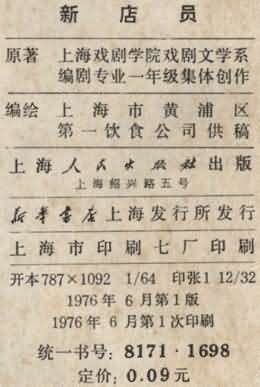 新店员
原著 上海戏剧学院戏剧文学系
编剧专业一年级集体创作
编绘 上海市黄浦区
第一饮食公司供稿
上海人民出版社出版
上海绍兴路五号
新华书店上海发行所发行
上海市印刷七厂印刷
开本787×1092 1/64 印张1 12/32
1976年6月第1版
1976年6月第1次印刷
统一书号：8171·1698
定价：0.09元